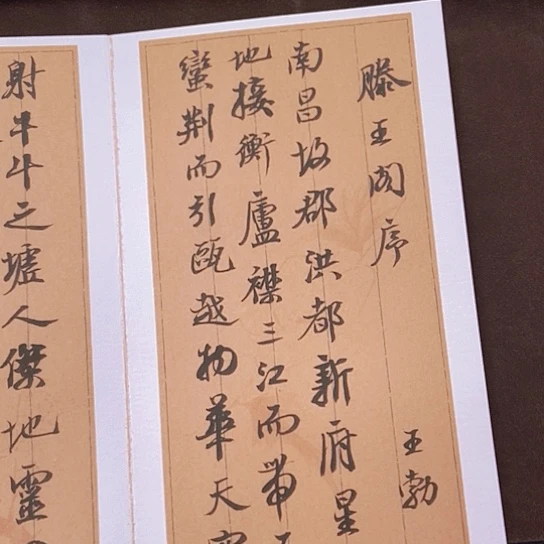 滕王阁序
王勃
南昌故郡洪都新府星
地接衡廬襟三江而帶
蠻荆而引甌越物華天
射牛斗之墟人傑地靈